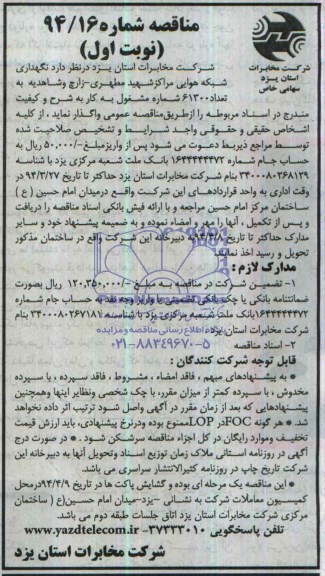 مناقصه شماره ۹۴/۱۶
(نوبت اول)
شرکت مخابرات
استان یزد
سهامی خاص
شرکت مخابرات استان یزد درنظر دارد نگهداری
شبکه هوایی مراکزشهید مطهری-زارچ وشاهدیه به
تعداد ۶۱۳۰۰ شماره مشغول به کار به شرح و کیفیت
مندرج در اسناد مربوطه را ازطریق مناقصه عمومی واگذار نماید، از کلیه
اشخاص حقیقی و حقوقی واجد شرایط و تشخیص صلاحیت شده
توسط مراجع ذیربط دعوت می شود پس از واریزمبلغ-/۵۰۰,۰۰۰ ریال به
حساب جام شماره ۱۶۴۴۴۴۴۴۷۲ بانک ملت شعبه مرکزی یزد با شناسه
۳۴۰۰۰۸۰۲۶۸۱۲۹ بنام شرکت مخابرات استان یزد حداکثر تا تاریخ ۹۴/۳/۲۷ در
وقت اداری به واحد قراردادهای این شرکت واقع درمیدان امام حسین (ع)
ساختمان مرکز امام حسین مراجعه و با ارائه فیش بانکی اسناد مناقصه را دریافت
و پس از تکمیل، آنها را مهر و امضاء نموده و به ضمیمه پیشنهاد خود و سایر
مدارک حداکثر تا تاریخ ۹۴/۴/۸ به دبیرخانه این شرکت واقع در ساختمان مذکور
تحویل و رسید اخذ نمایند.
مدارک لازم :
۱- تضمین شرکت در مناقصه به مبلغ -/۱۲۰,۳۵۰,۰۰۰ ریال بصورت
ضمانتنامه بانکی یا چک بانکی تضمینی یا واریز وجه نقد به حساب جام شماره
۱۶۴۴۴۴۴۴۷۲ بانک ملت شعبه مرکزی یزد با شناسه ۳۴۰۰۰۸۰۲۶۷۱۸۷ بنام
شرکت مخابرات استان یزد
۲- اسناد مناقصه
پایگاه اطلاع رسانی مناقصه و مزایده
۰۲۱-۸۸۳۴۹۶۷۰-۵
قابل توجه شرکت کنندگان :
* به پیشنهادهای مبهم، فاقد امضاء، مشروط، فاقد سپرده، یا سپرده
مخدوش، یا سپرده کمتر از میزان مقرر، با چک شخصی ونظایر اینها وهمچنین
پیشنهادهایی که بعد از زمان مقرر در آگهی واصل شود ترتیب اثر داده نخواهد
شد. * هر گونه FOC در LOP ممنوع بوده ودرنرخ پیشنهادی، باید ارزش قیمت
تخفیف وموارد رایگان در کل اجزاء مناقصه سرشکن شود. * در صورت درج
آگهی در روزنامه استانی ملاک زمان توزیع اسناد وتحویل آنها به دبیرخانه این
شرکت تاریخ چاپ در روزنامه کثیرالانتشار سراسری می باشد.
* این مناقصه یک مرحله ای بوده و گشایش پاکت ها در تاریخ ۹۴/۴/۹ درمحل
کمیسیون معاملات شرکت به نشانی -یزد-میدان امام حسین(ع) ساختمان
مرکزی شرکت مخابرات استان یزد اتاق جلسات طبقه دوم می باشد.
تلفن پاسخگویی ۳۷۲۳۳۰۱۰- www.yazdtelecom.ir
شرکت مخابرات استان یزد